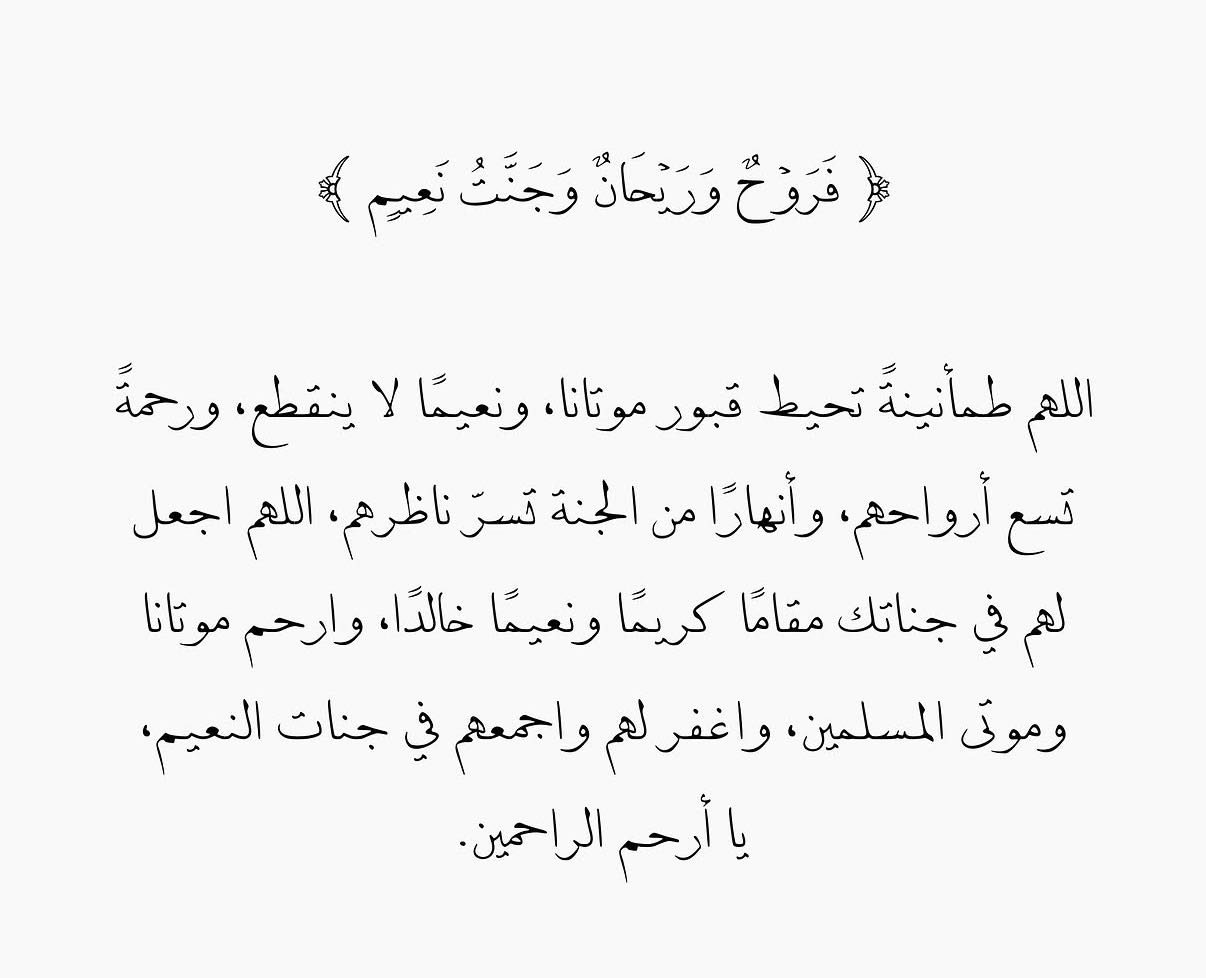 ﴿ فَرَوۡحٌ وَرَيۡحَانٌ وَجَنَّتُ نَعِيمٍ ﴾
اللهم طمأنينةً تحيط قبور موتانا، ونعيمًا لا ينقطع، ورحمةً
تسع أرواحهم، وأنهارًا من الجنة تسرّ ناظرهم، اللهم اجعل
لهم في جناتك مقامًا كريمًا ونعيمًا خالدًا، وارحم موتانا
وموتى المسلمين، واغفر لهم واجمعهم في جنات النعيم،
يا أرحم الراحمين.